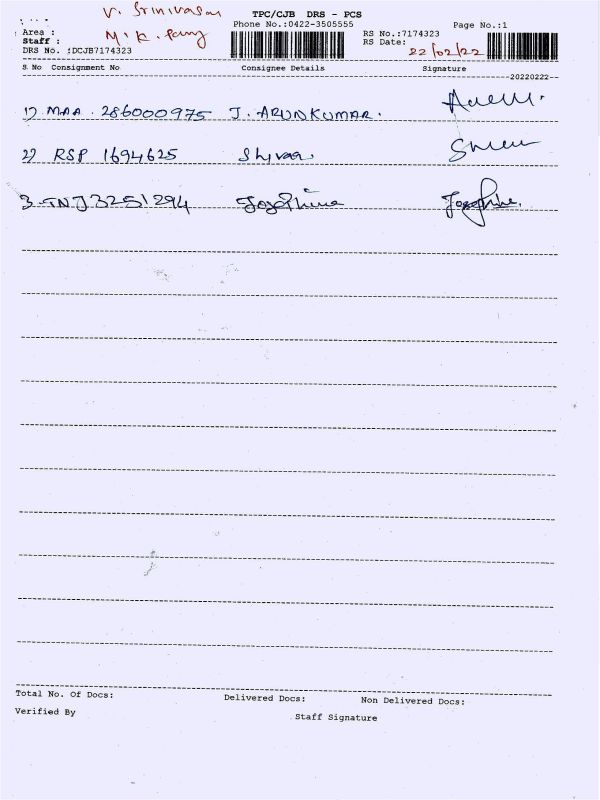 V. Srinivasan
TPC/CJB DRS - PCS
Phone No.:0422-3505555
Page No.:1
Area :
M.K.
Staff :
RS No.:7174323
RS Date:
22/02/22
DRS No. :DCJB7174323
S No Consignment No Consignee Details Signature
20220222
1) MAA 286000975 J. ARUNKUMAR.
2) RSP 1694625
3. TNJ 3251294 Josephine Josephine.
Total No. Of Docs: Delivered Docs: Non Delivered Docs:
Verified By Staff Signature